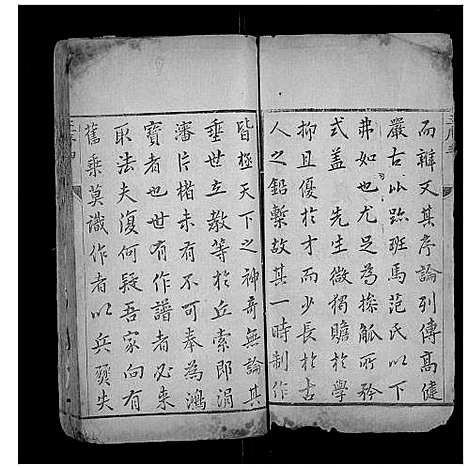 而辯又其序論列傳高健
嚴古以跆班馬范氏以下
弗如也尤足為操觚所矜
式蓋　先生微獨贍於學
抑且優於才而少長於古
人之鉛槧故其一時制作
皆極天下之神奇無論其
垂世立教等於丘索即涓
瀋片楮未有不可奉為鴻
寳者也世有作譜者必來
取法夫復何疑吾家向有
舊乗莫識作者以兵燹失